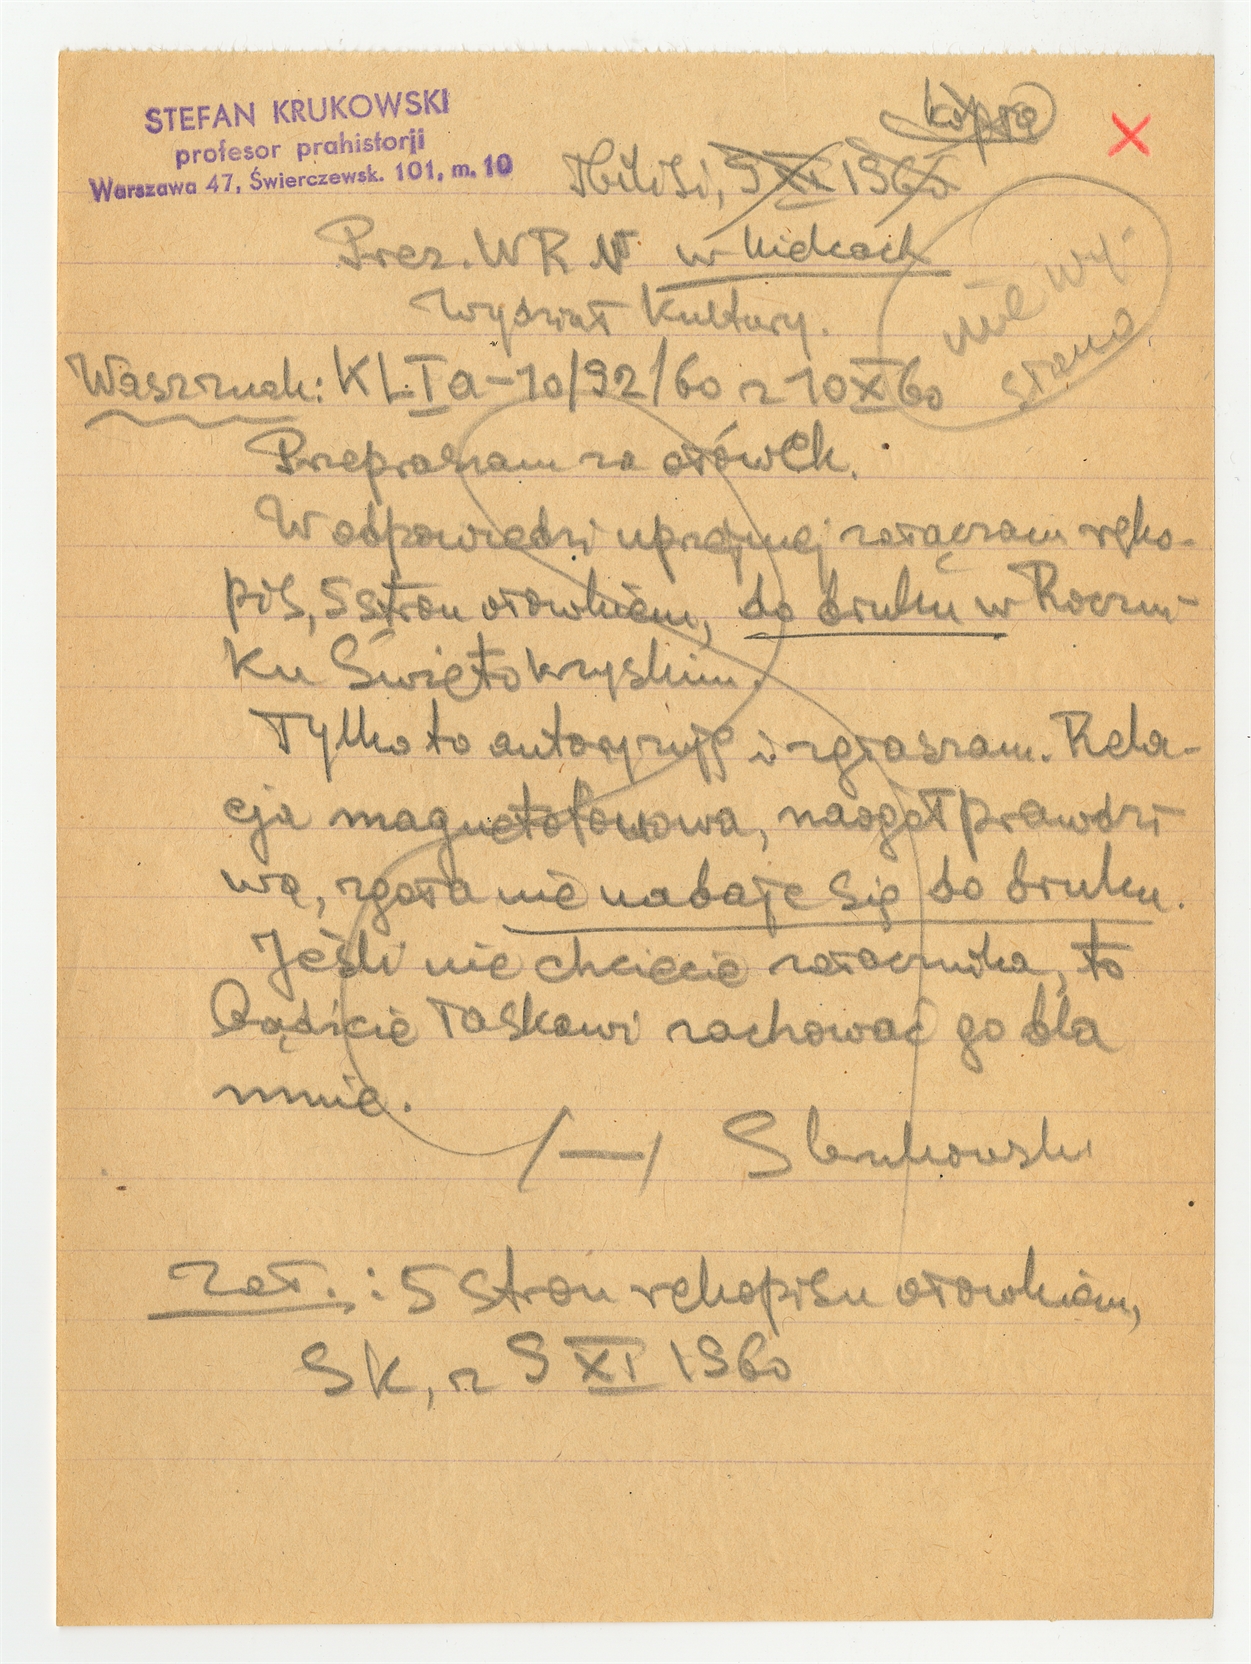 STEFAN KRUKOWSKI
profesor prahistorji
Warszawa 47, Świerczewsk. 101, m. 10
kopja
Tbilisi, 9 XI 1960
Prez. WRN w Kielcach
Wydział Kultury.
nie wy-
słano
Wasz znak: KL. I a-10/92/60 z 10 X 60
Przepraszam za ołówek.
W odpowiedzi uprzejmej załączam ręko-
pis, 5 stron ołówkiem, do druku w Roczni-
ku Świętokrzyskim.
Tylko to autoryzuję i zgłaszam. Rela-
cja magnetofonowa, naogół prawdzi
wa, zgoła nie nadaje się do druku.
Jeśli nie chcecie załącznika, to
bądźcie łaskawi zachować go dla
mnie.
/—/ S Krukowski
Zał.: 5 stron rękopisu ołówkiem,
SK, z 9 XI 1960